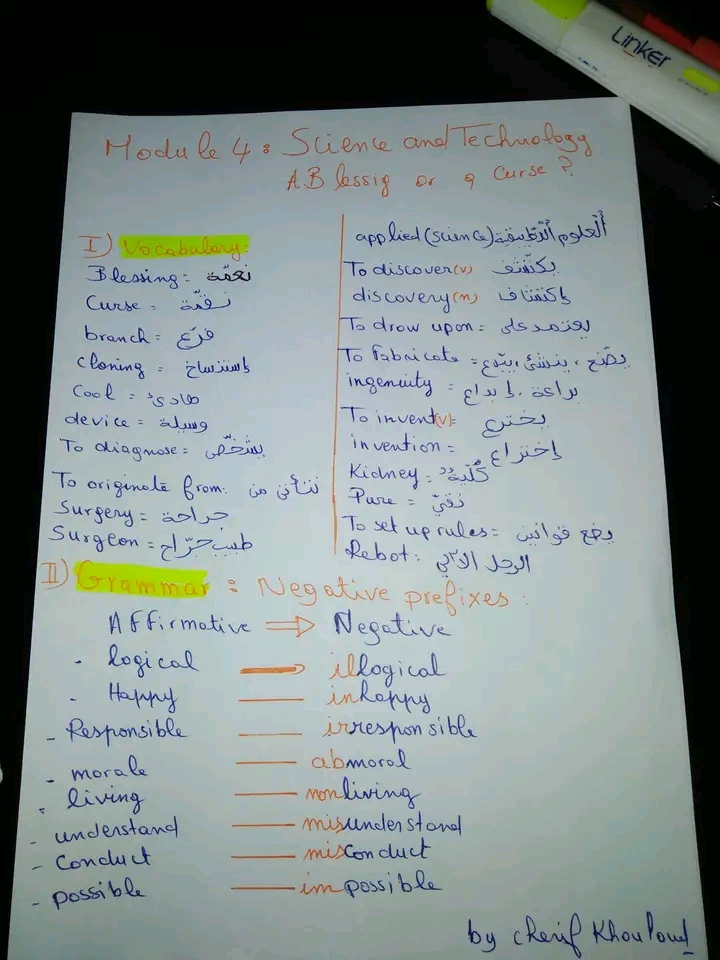 Linker
Module 4: Science and Technology
A Blessig or a Curse?
I) Vocabulary:
Blessing = نعمّة
Curse = نقمّة
branch = فرّع
Cloning = إستنساخ
Cool = هادئ
device = وسيلة
To diagnose = يشخّص
To originate from: تتأتى من
Surgery = جراحة
Surgeon = طبيب جرّاح
applied (science) العلوم التطبيقية
To discover (v) يكتشف
discovery (n) إكتشاف
To drow upon = يعتمد على
To fabricate =
ingenuity = براعة، إبداع
To invent (v) = يخترع
invention = إختراع
Kidney = كُلية
Pure = نقيّ
To set up rules = يضع قوانين
Rebot: الرجل الآلي
II) Grammar: Negative prefixes:
Affirmative ⇒ Negative
. logical → illogical
. Happy — inhappy
- Responsible — irresponsible
- morale — abmoral
- living — nonliving
- understand — misunderstand
- Conduct — misConduct
- possible — impossible
by cherif Khouloud